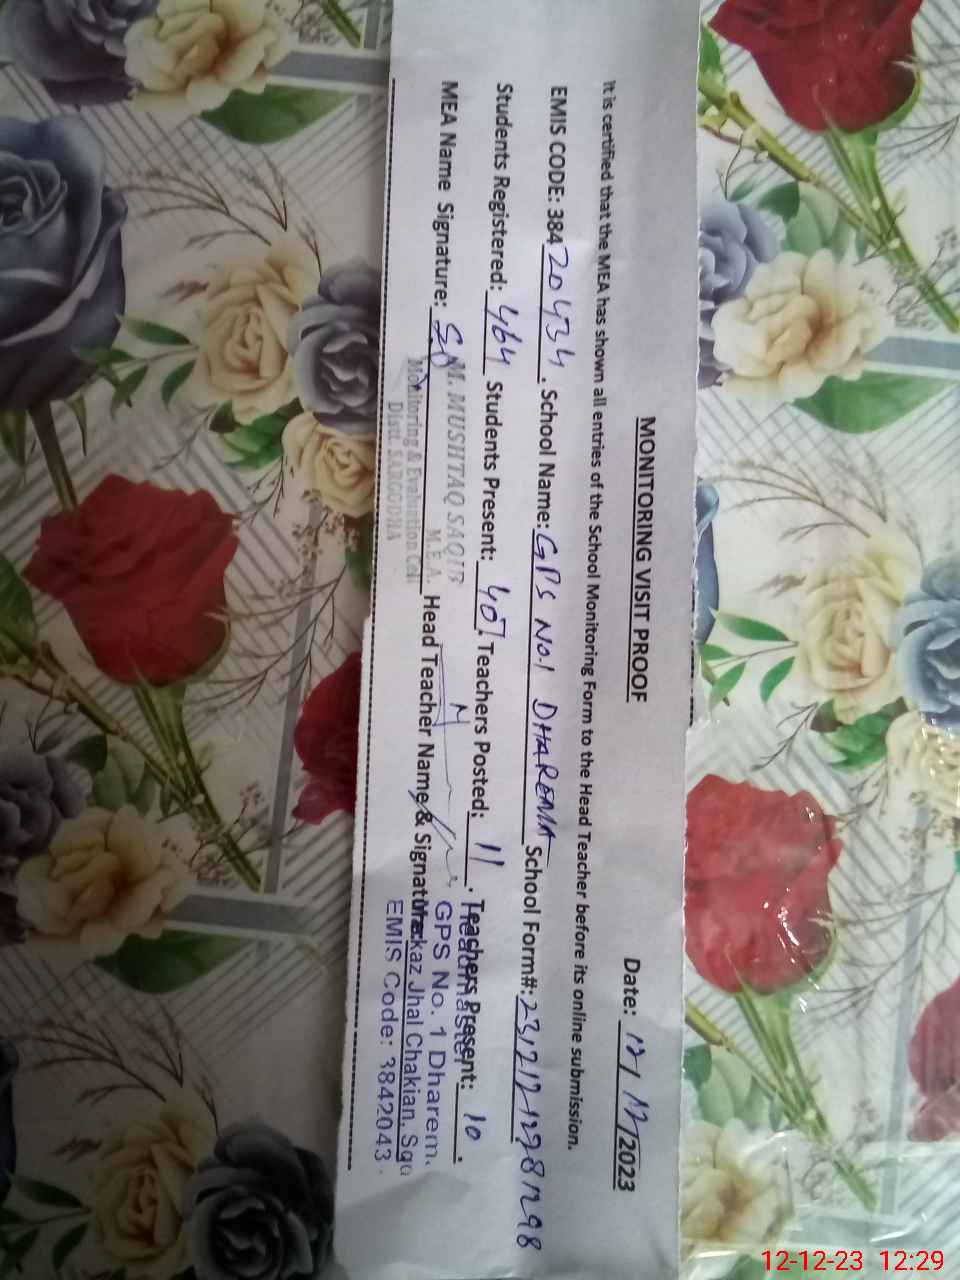 MONITORING VISIT PROOF
Date: 12/12/2023
It is certified that the MEA has shown all entries of the School Monitoring Form to the Head Teacher before its online submission.
EMIS CODE: 38420434. School Name: GPS No.1 DHAREMA School Form#:
Students Registered: 464 Students Present: 407. Teachers Posted: 11. Teachers Present: 10.
MEA Name Signature: Head Teacher Name & Signature:
M. MUSHTAQ SAQIB
M.E.A.
Monitoring & Evaluation Cell
Distt. SARGODHA
Headmaster
GPS No. 1 Dharem.
Markaz Jhal Chakian, Sgd
EMIS Code: 3842043
12-12-23 12:29